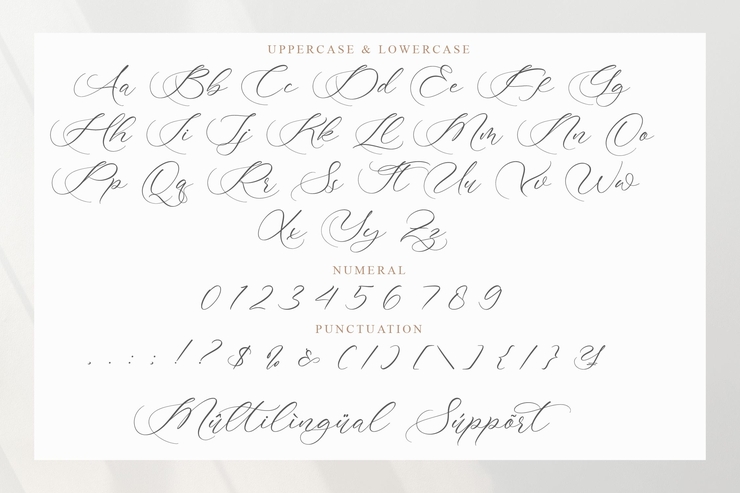 UPPERCASE & LOWERCASE
Aa Bb Cc Dd Ee Ff Gg
Hh Ii Jj Kk Ll Mm Nn Oo
Pp Qq Rr Ss Tt Uu Vv Ww
Xx Yy Zz
NUMERAL
0 1 2 3 4 5 6 7 8 9
PUNCTUATION
, . : ; ! ? $ % & ( / ) [ \ ] { | } ¥
Múltilìngüal Súppõrt